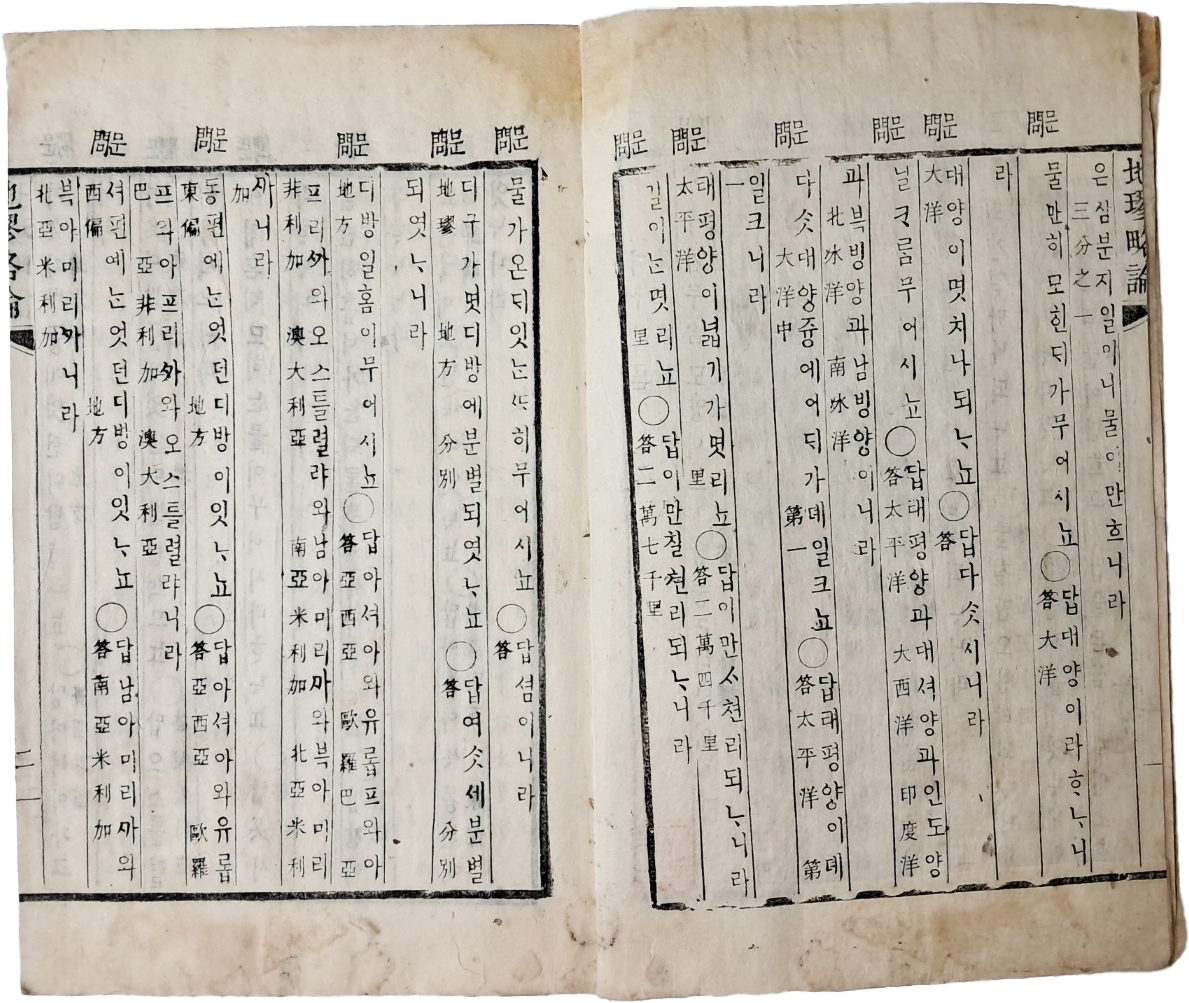 地璆略論
은삼분지일이니물이만흐니라
三分之一
문물만히모힌ᄃᆡ가무어시뇨○답대양이라ᄒᆞᄂᆞ니
問 答大洋
라
문대양이몃치나되ᄂᆞ뇨○답다ᄉᆞᆺ시니라
問大洋 答
문닐ᄏᆞ름무어시뇨○답태평양과대셔양과인도양
問 答太平洋 大西洋 印度洋
과븍빙양과남빙양이니라
北氷洋 南氷洋
문다ᄉᆞᆺ대양즁에어ᄃᆡ가뎨일크뇨○답태평양이뎨
問 大洋中 第一 答太平洋 第
일크니라
一
문태평양이넓기가몃리뇨○답이만ᄉᆞ쳔리되ᄂᆞ니라
問太平洋 里 答二萬四千里
문길이ᄂᆞᆫ몃리뇨○답이만칠쳔리되ᄂᆞ니라
問 里 答二萬七千里
一
문물가온ᄃᆡ잇ᄂᆞᆫᄯᅡ히무어시뇨○답셤이니라
問 答
문디구가몃디방에분별되엿ᄂᆞ뇨○답여ᄉᆞᆺ세분별
問地璆 地方 分別 答 分別
되엿ᄂᆞ니라
문디방일홈이무어시뇨○답아셔아와유롭프와아
問地方 答亞西亞 歐羅巴 亞
프리ᄭᅡ와오스틀렬랴와남아미리ᄭᅡ와븍아미리
非利加 澳大利亞 南亞米利加 北亞米利
ᄭᅡ니라
加
문동편에ᄂᆞᆫ엇던디방이잇ᄂᆞ뇨○답아셔아와유롭
問東偏 地方 答亞西亞 歐羅
프와아프리ᄭᅡ와오스틀렬랴니라
巴 亞非利加 澳大利亞
문셔편에ᄂᆞᆫ엇던디방이잇ᄂᆞ뇨○답남아미리ᄭᅡ와
問西偏 地方 答南亞米利加
븍아미리ᄭᅡ니라
北亞米利加
地璆略論
二